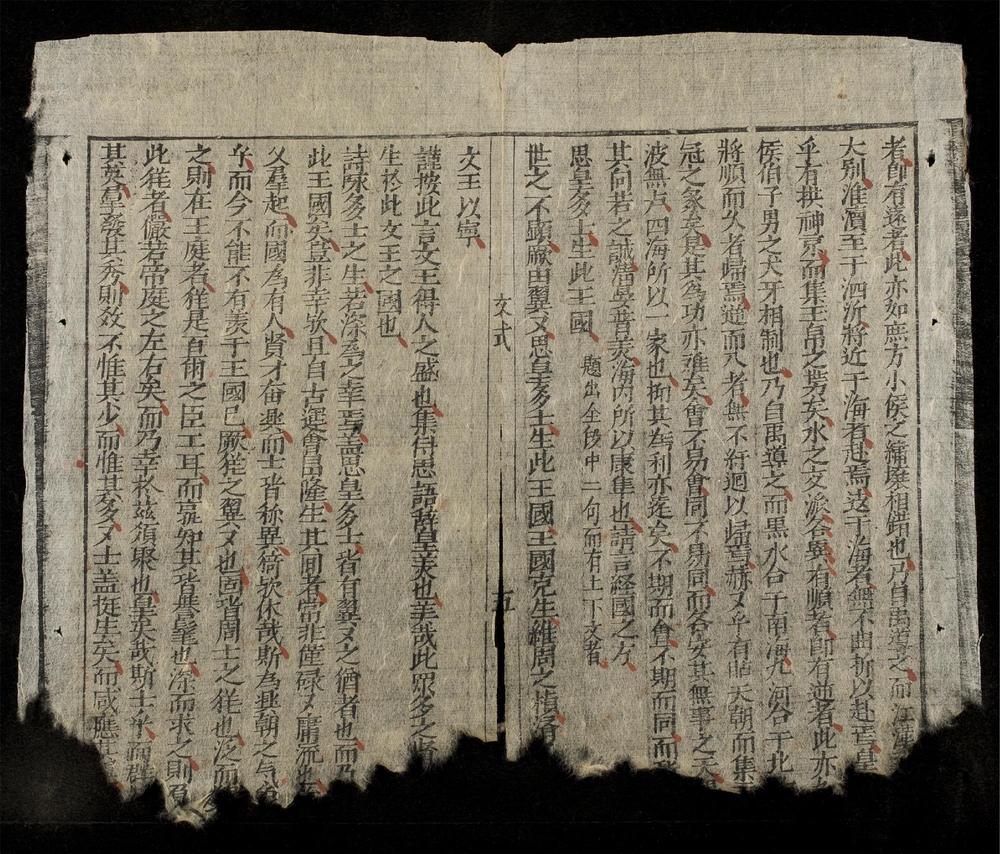 者即有遠者此亦如庶方小侯之藩屏相錯也乃自禹導之而江漢
大別淮瀆至于泗沂將近于海者赴焉遠于海者無不曲折以赴焉皇
乎有拱神京而集王帛之势矣水之交派各異有順者即有逆者此亦
侯伯子男之犬牙相制也乃自禹導之而黒水合于南海九河合于北
將順而久者歸焉逆而入者無不紆迴以歸焉赫又乎有朝天朝而集
冠之象矣是其為功亦难矣會不易會同不易同而今安其無事之天
波無点四海所以一家也抑其為利亦逺矣不期而會不期而同而
其向若之誠潜孚普美海内所以康隼也請言經國之方
思皇多士生此王國
題出全俊中二句而有上下文者
世之不顕厥由翼又思皇多士生此王國王國克生維周之楨
文式
五
文王以寧
謹按此言文王得人之盛也集侍思語辞皇美也羙哉此眾多之賢
生於此文王之國也
詩陳多士之生若深為之幸焉盖思皇多士皆有翼又之猶者也而乃
此王國矣豈非幸欤且自古運會昌隆生其間者常非僅碌又庸流
父羣起而國為有人賢才奋興而士皆称異猗欤休哉斯為興朝之
乎而今不能不有羡于王國已厥猶之翼又也固皆周士之猶也泛而
之則在王庭者猶是直衛之臣工耳而㝠知其皆無髦也深而求之則
此猶者儼若帝庭之左右矣而乃幸於兹須聚也皇矣哉斯士乎而群
其英皇發其秀則效不惟其少而惟其多又士盖挺生矣而咸應